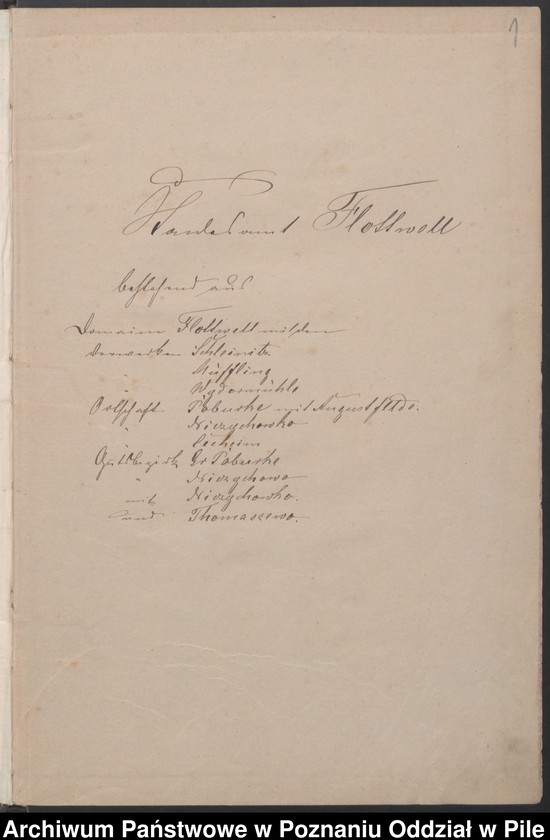 1
Standesamt Flottwell
bestehend aus
Domaine Flottwell mit den
Vorwerken Schleinitz
" Müffling
" Wydormühle
Ortschaft Poburke mit Augustfelde.
" Niezychowko
" Seeheim
Gutsbezirk Gr Poburke
" Niezychowo
mit Niezychowko.
und Thomaszewo.
Archiwum Państwowe w Poznaniu Oddział w Pile